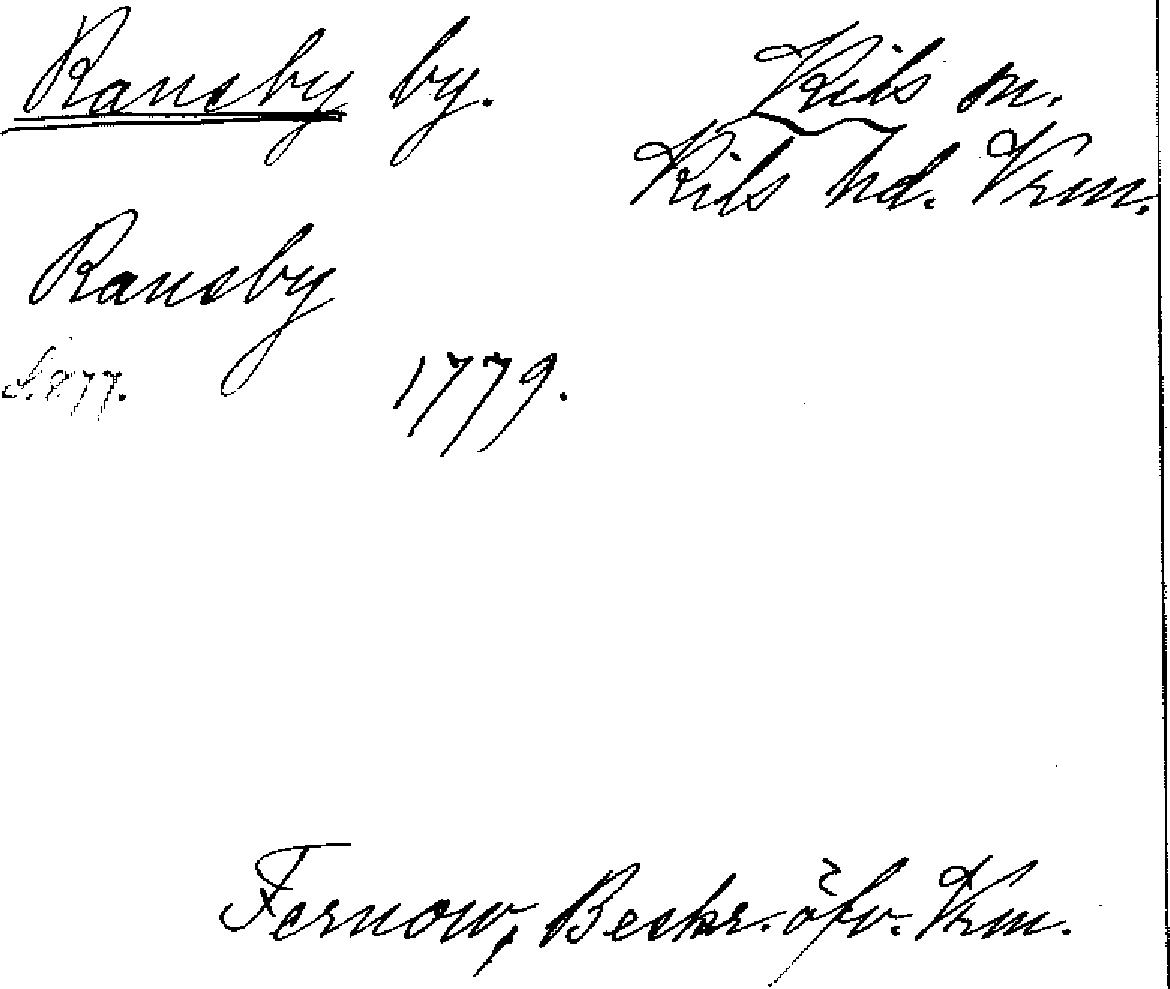 Ransby by.
Kils sn.
Kils hd. Vrm.
Ransby
S. 877.
1779.
Fernow, Beskr. öfv. Vrm.